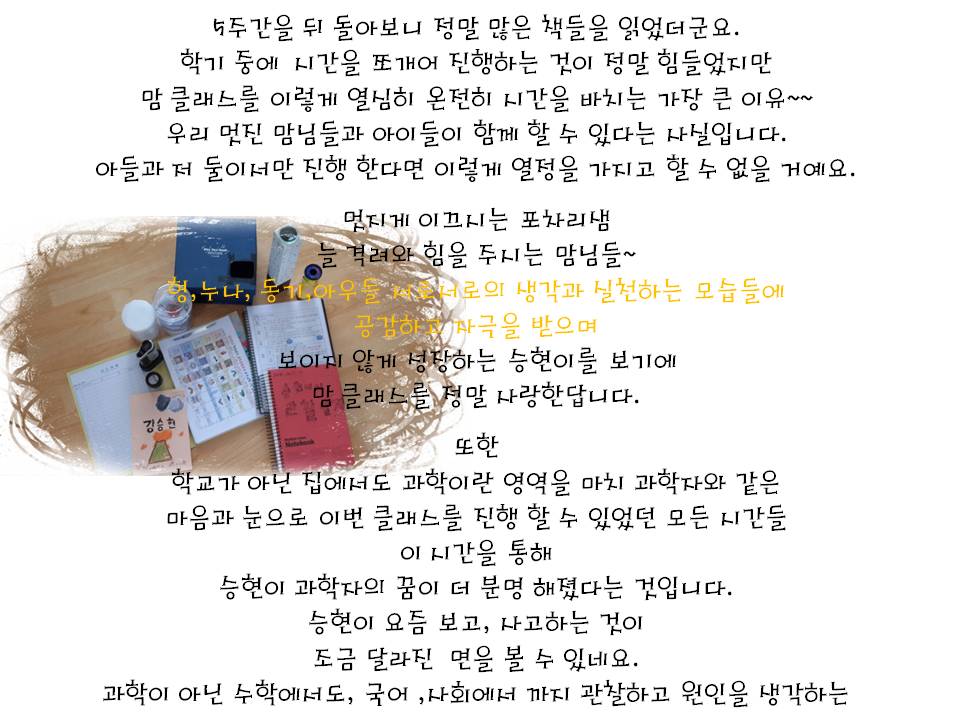 5주간을 뒤 돌아보니 정말 많은 책들을 읽었더군요.
학기 중에 시간을 쪼개어 진행하는 것이 정말 힘들었지만
맘 클래스를 이렇게 열심히 온전히 시간을 바치는 가장 큰 이유~~
우리 멋진 맘님들과 아이들이 함께 할 수 있다는 사실입니다.
아들과 저 둘이서만 진행 한다면 이렇게 열정을 가지고 할 수 없을 거예요.
멋지게 이끄시는 포차리샘
늘 격려와 힘을 주시는 맘님들~
형,누나, 동기,아우들 서로서로의 생각과 실천하는 모습들에
공감하고 자극을 받으며
보이지 않게 성장하는 승현이를 보기에
맘 클래스를 정말 사랑한답니다.
김승현
Notebook
또한
학교가 아닌 집에서도 과학이란 영역을 마치 과학자와 같은
마음과 눈으로 이번 클래스를 진행 할 수 있었던 모든 시간들
이 시간을 통해
승현이 과학자의 꿈이 더 분명 해졌다는 것입니다.
승현이 요즘 보고, 사고하는 것이
조금 달라진 면을 볼 수 있네요.
과학이 아닌 수학에서도, 국어 ,사회에서 까지 관찰하고 원인을 생각하는